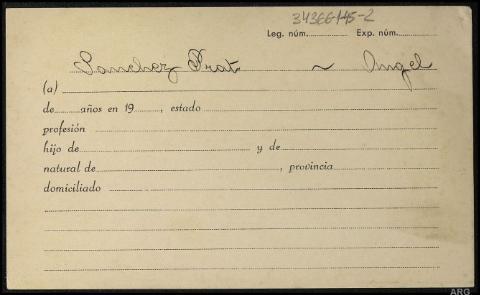 34366-145-2
Leg. núm. Exp. núm.
Sanchez Prat ~ Angel
(a)
de años en 19 , estado
profesión
hijo de y de
natural de , provincia
domiciliado
ARG